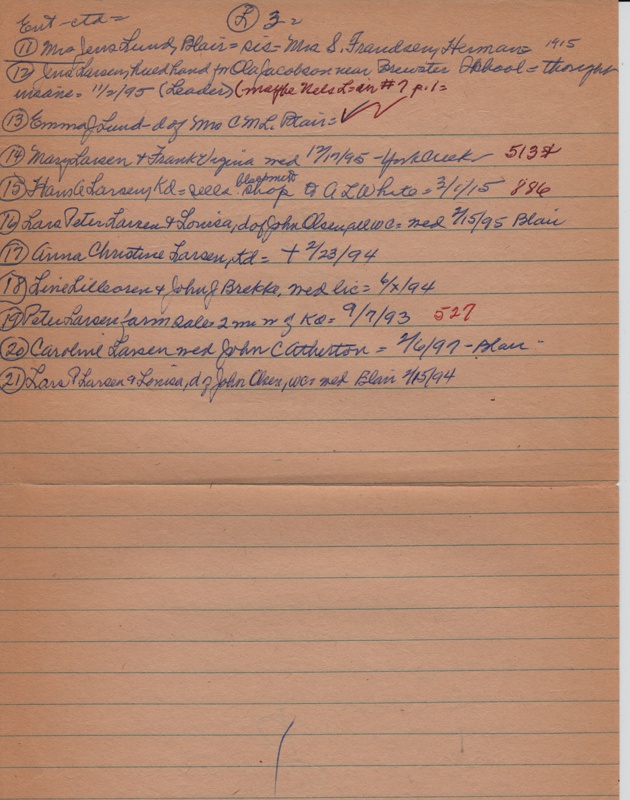 Ent-ctd= (L) 3=
(11) Mrs Jens Lund, Blair= sis= Mrs S. Frandsen, Herman= 1915
(12) Jens Larsen, hired hand for Ola Jacobson near Brewster School= thought
insane= 11/2/95 (Leader) (maybe Nels L= an #7 p.1=
(13) Emma J Lund-d of Mrs C M L. Blair= ✓
(14) Mary Larsen & Frank Vegina med 12/17/95 - York Creek 513
(15) Hans C Larsen, Kd= sells blaspmett shop to A L White= 3/1/15 886
(16) Lars Peter Larsen & Lonisa, d of John Olsen, all WC= med 2/15/95 Blair
(17) Anna Christine Larsen, Kd= + 2/23/94
(18) Line Lilleoren & John J Brekke, med lic= 6/x/94
(19) Peter Larsen farm sale= 2 mi w of Kd= 9/7/93 527
(20) Caroline Larsen med John C Atherton = 2/6/97 - Blair -
(21) Lars P Larsen & Lonisa, d of John Olsen, WC= med Blair 2/15/94